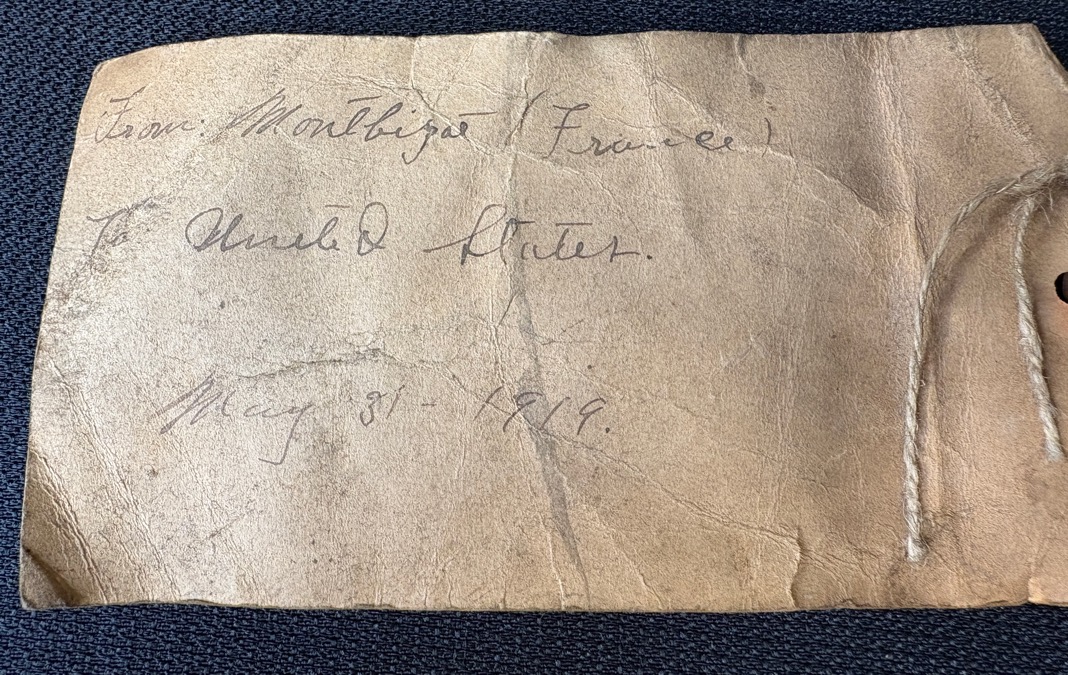 From: Montbizot (France)
To United States.
May 31 - 1919.